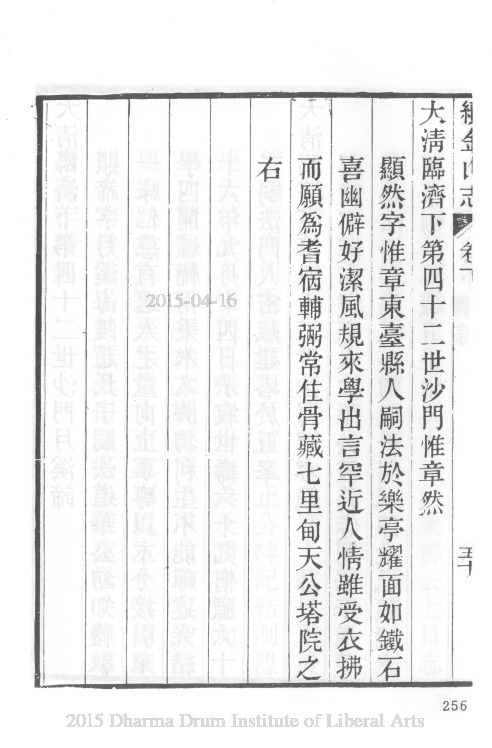 續金山志 卷下 五十
大清臨濟下第四十二世沙門惟章然
顯然字惟章東臺縣人嗣法於樂亭耀面如鐵石
喜幽僻好潔風規來學出言罕近人情雖受衣拂
而願為耆宿輔弼常住骨藏七里甸天公塔院之
右
2015-04-16
256
2015 Dharma Drum Institute of Liberal Arts